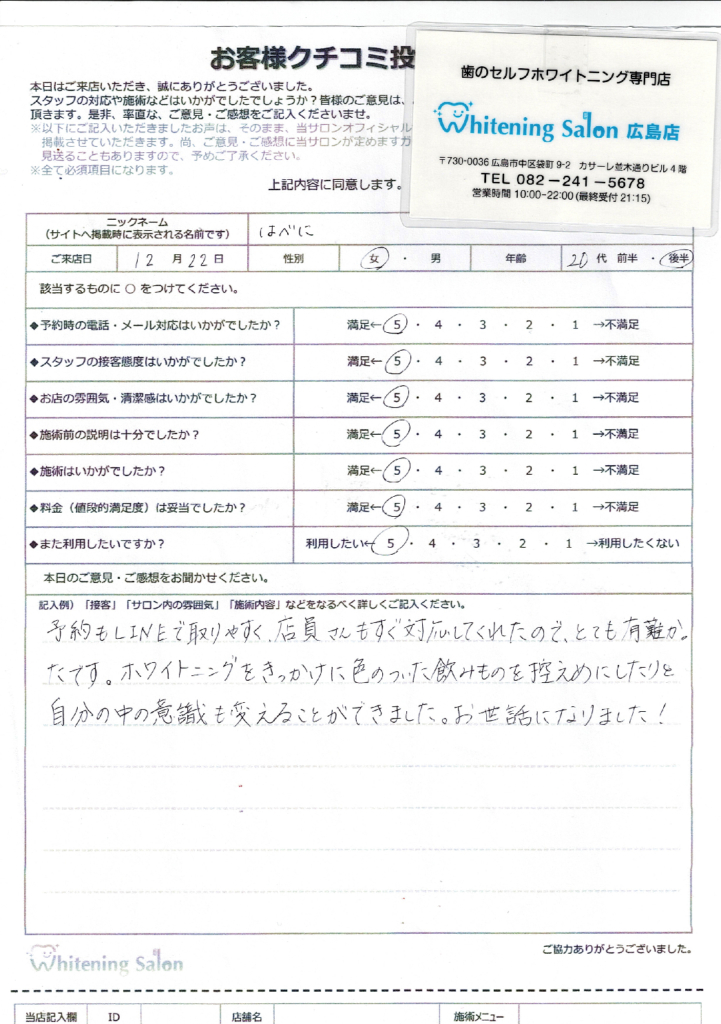 お客様クチコミ投
本日はご来店いただき、誠にありがとうございました。
スタッフの対応や施術などはいかがでしたでしょうか？皆様のご意見は、
頂きます。是非、率直な、ご意見・ご感想をご記入くださいませ。
※以下にご記入いただきましたお声は、そのまま、当サロンオフィシャル
掲載させていただきます。尚、ご意見・ご感想に当サロンが定めますガ
見送ることもありますので、予めご了承ください。
※全て必須項目になります。
上記内容に同意します。
歯のセルフホワイトニング専門店
Whitening Salon 広島店
〒730-0036 広島市中区袋町 9-2 カサーレ並木通りビル 4 階
TEL 082－241－5678
営業時間 10:00-22:00 (最終受付 21:15)
ニックネーム
(サイトへ掲載時に表示される名前です)
はべに
ご来店日 12 月 22 日 性別 女 ・ 男 年齢 20 代 前半 ・ 後半
該当するものに ○ をつけてください。
◆予約時の電話・メール対応はいかがでしたか？ 満足← 5 ・ 4 ・ 3 ・ 2 ・ 1 →不満足
◆スタッフの接客態度はいかがでしたか？ 満足← 5 ・ 4 ・ 3 ・ 2 ・ 1 →不満足
◆お店の雰囲気・清潔感はいかがでしたか？ 満足← 5 ・ 4 ・ 3 ・ 2 ・ 1 →不満足
◆施術前の説明は十分でしたか？ 満足← 5 ・ 4 ・ 3 ・ 2 ・ 1 →不満足
◆施術はいかがでしたか？ 満足← 5 ・ 4 ・ 3 ・ 2 ・ 1 →不満足
◆料金（値段的満足度）は妥当でしたか？ 満足← 5 ・ 4 ・ 3 ・ 2 ・ 1 →不満足
◆また利用したいですか？ 利用したい← 5 ・ 4 ・ 3 ・ 2 ・ 1 →利用したくない
本日のご意見・ご感想をお聞かせください。
記入例）「接客」「サロン内の雰囲気」「施術内容」などをなるべく詳しくご記入ください。
予約もLINEで取りやすく、店員さんもすぐ対応してくれたので、とても有難かっ
たです。ホワイトニングをきっかけに色のついた飲みものを控えめにしたりと
自分の中の意識も変えることができました。お世話になりました！
Whitening Salon
ご協力ありがとうございました。
当店記入欄 ID 店舗名 施術メニュー